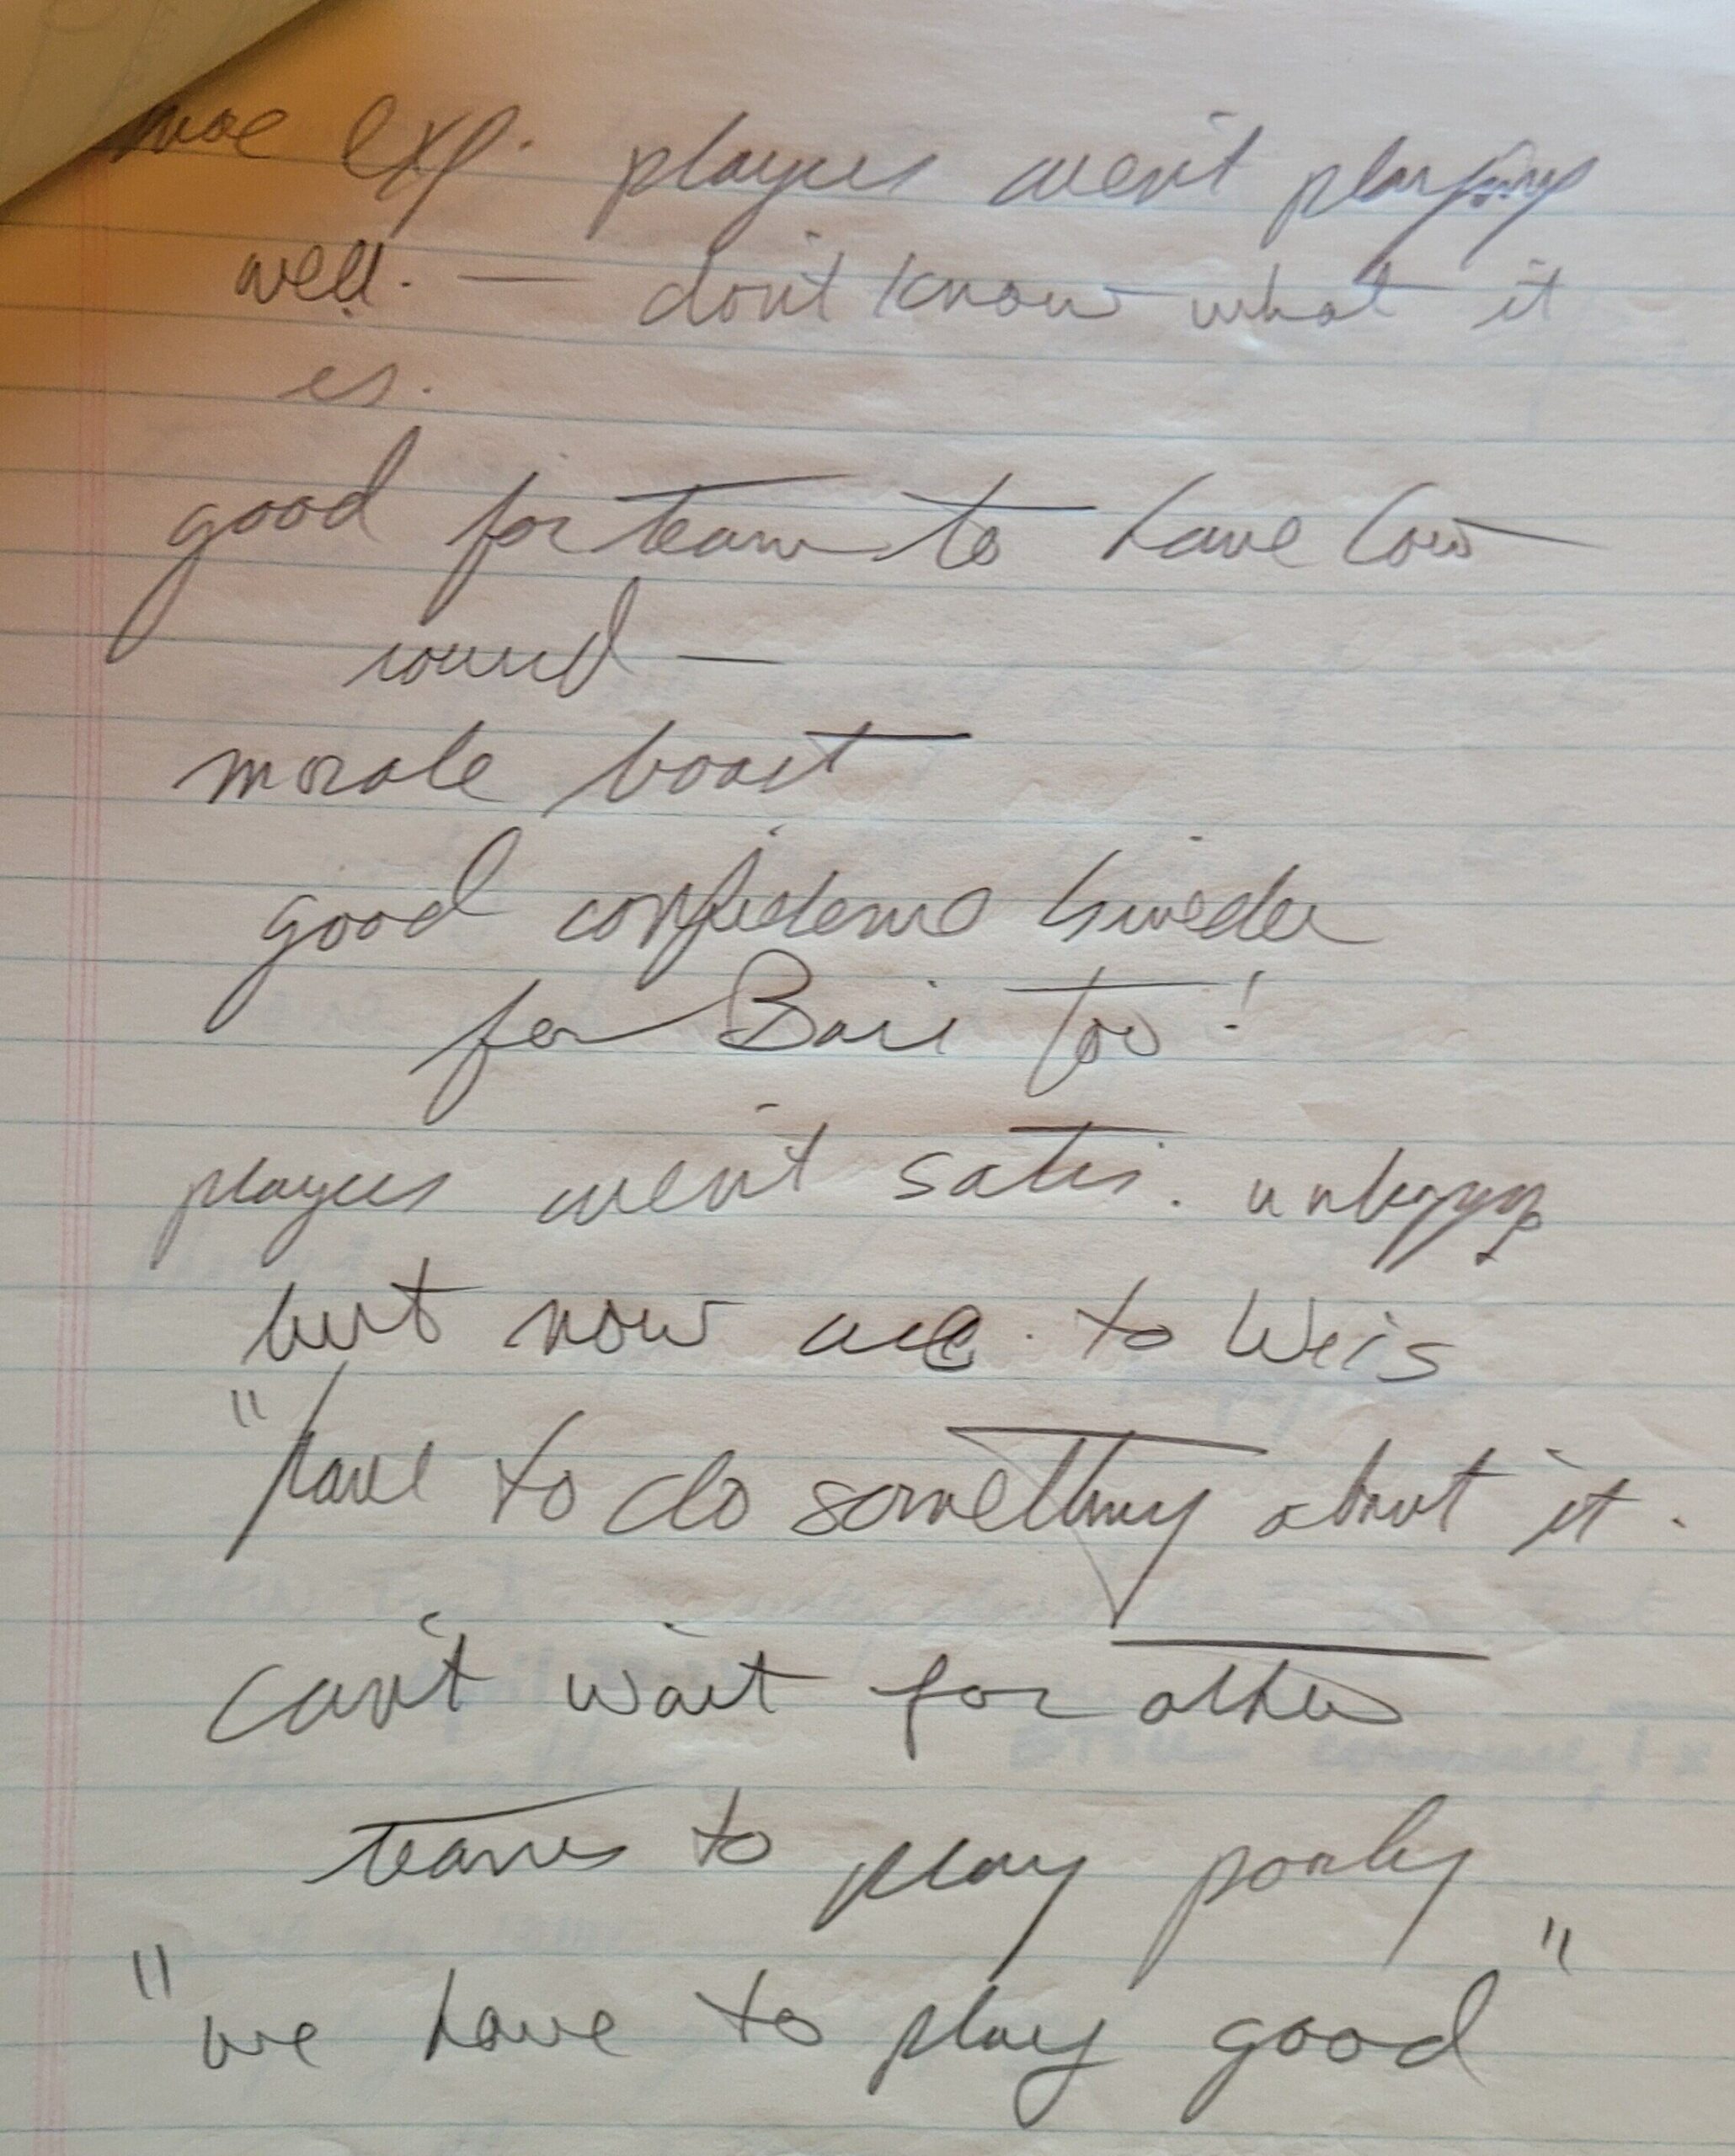 more exp. players weren't playing
well. — don't know what it
is.
good for team to have low
round —
morale boost
good confidence builder
for Bari too!
players weren't satis. unhappy
but now acc. to Weis
"have to do something about it.
can't wait for other
teams to play poorly
"we have to play good"